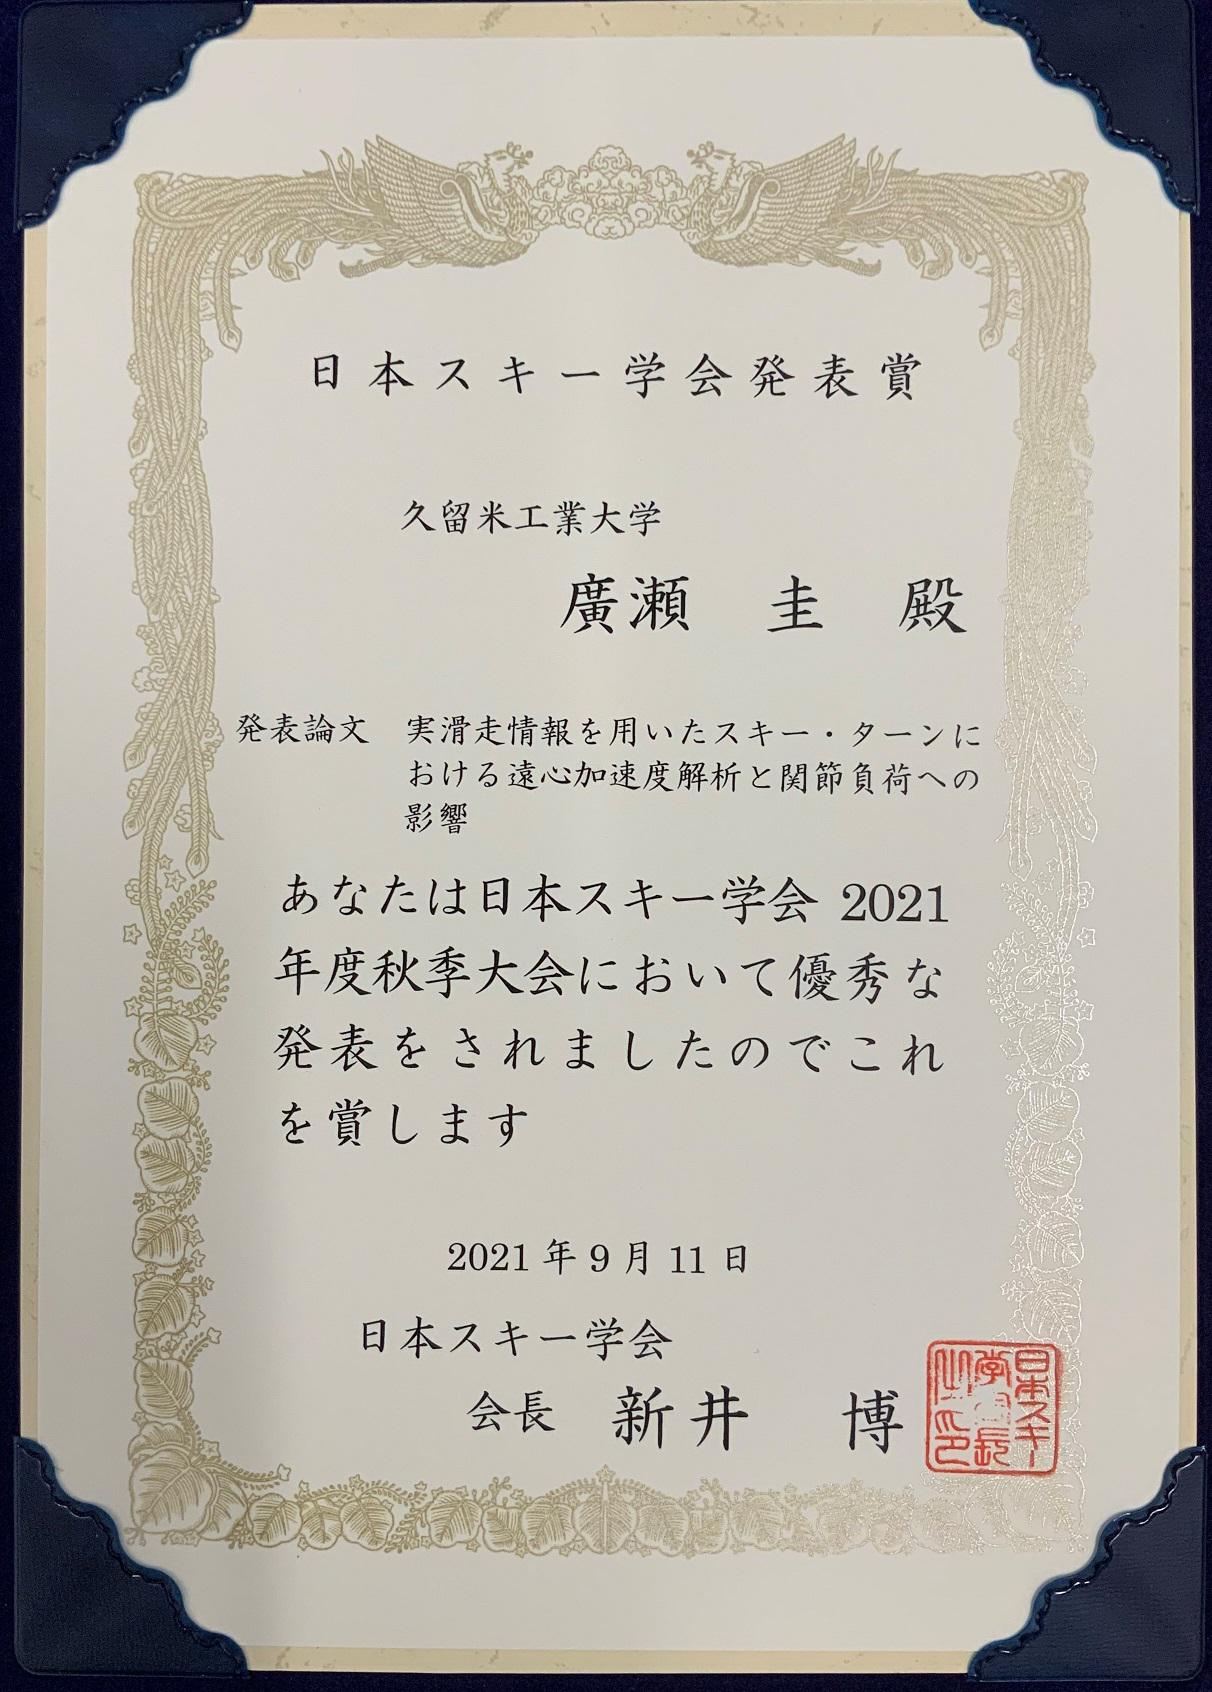 日本スキー学会発表賞
久留米工業大学
廣瀬 圭 殿
発表論文 実滑走情報を用いたスキー・ターンに
おける遠心加速度解析と関節負荷への
影響
あなたは日本スキー学会 2021
年度秋季大会において優秀な
発表をされましたのでこれ
を賞します
2021 年 9 月 11 日
日本スキー学会
会長 新井 博
日本スキー
学会長
之印